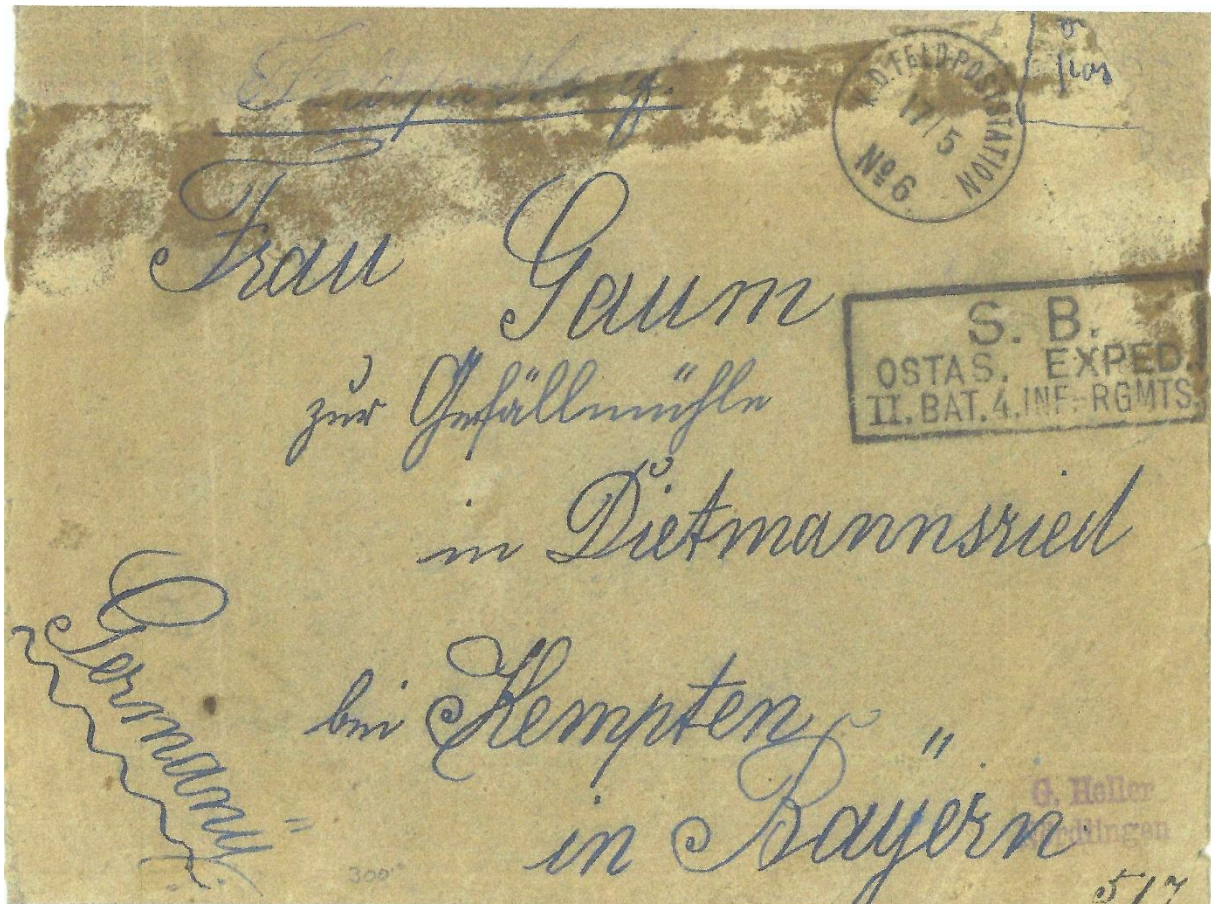 Feldpostbrief.
K.D. FELD-POSTSTATION
17/5
No 6.
Frau Gaum
S. B.
OSTAS. EXPED.
II. BAT. 4. INF.-RGMTS.
zur Gefällmühle
in Dietmannsried
Germany
bei Kempten
in Bayern.
G. Heller
Nördlingen
300
5/7